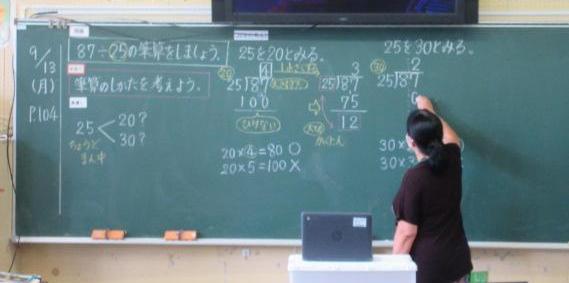 9/13
(月)
P.104
87÷25の筆算をしましょう。
筆算のしかたを考えよう。
25 < 20?
30?
ちょうど
まん中
25を20とみる。
20
4
25)87
100
ひけない
20×4=80 ○
20×5=100 ×
3
25)87
75
12
25を30とみる。
30
2
25)87
6
30×
30×3